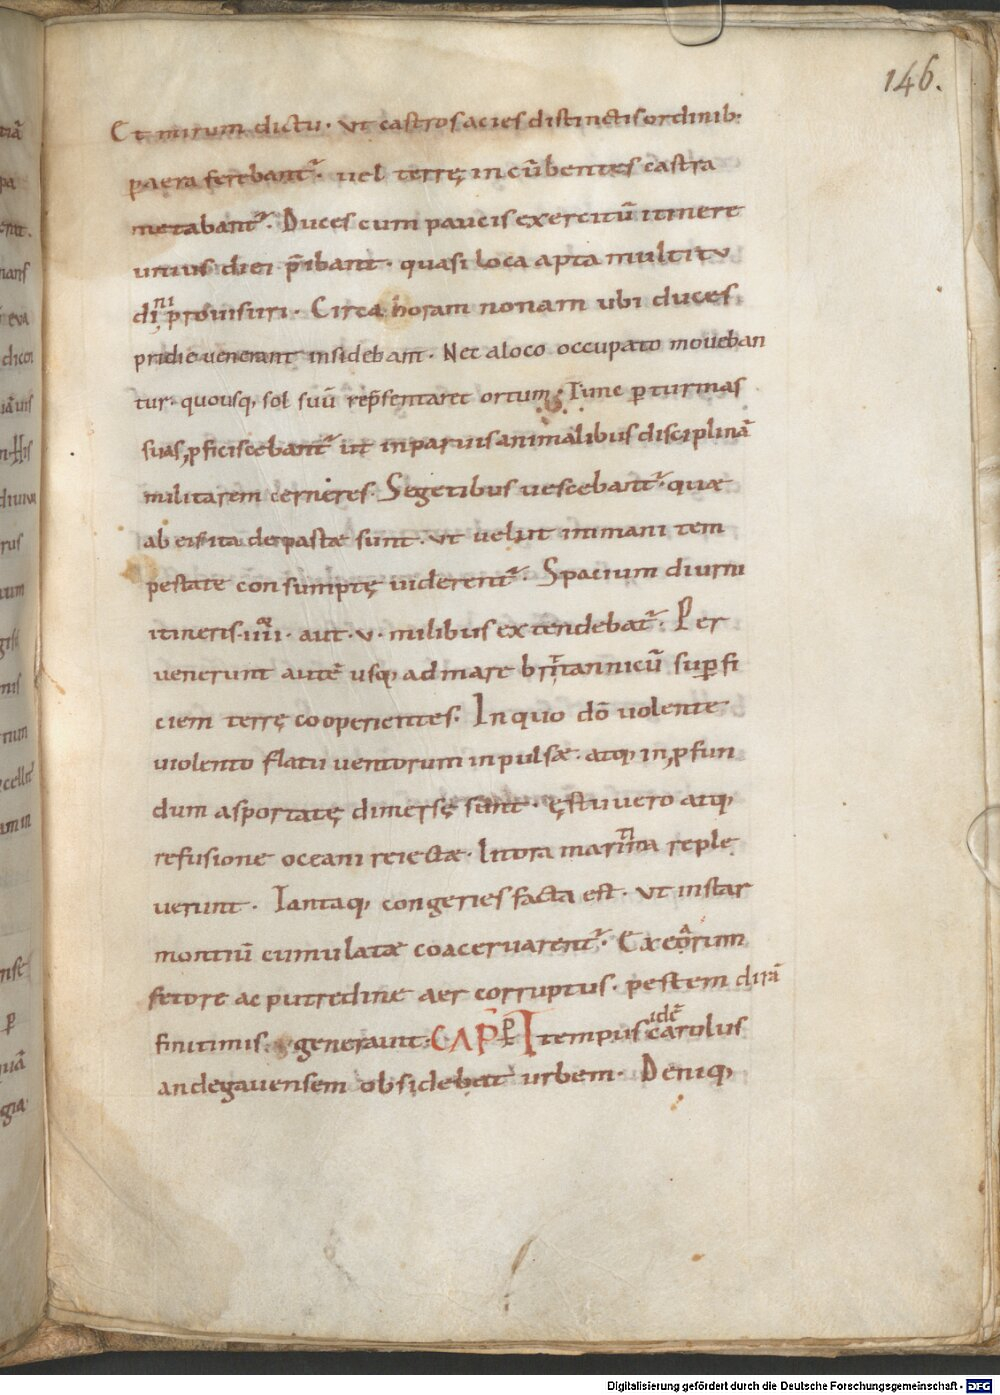 146.
Et mirum dictu · ut castros acies distinctis ordinib;
ꝑ aera ferebant᷑ · uel terrę incūbentes castra
metabant᷑ · Duces cum paucis exercitū itinere
unius diei p̄ibant · quasi loca apta multitu
dini ꝓuisuri · Circa horam nonam ubi duces
pridie uenerant insidebant · Nec a loco occupato moueban
tur · quousq; sol suū rep̄sentaret ortum · Tunc ꝑ turmas
suas ꝓficiscebant᷑ ut in paruis animalibus disciplinā
militarem cerneres · Segetibus uescebant᷑ · quae
ab eis ita depastae sunt · ut uelut immani tem
pestate consumptę uiderent᷑ · Spacium diurni
itineris · iiii · aut · v · milibus extendebat᷑ · Per
uenerunt autē usq; ad mare brittannicū suꝑfi
ciem terrę cooperientes · In quo dō uolente
uiolento flatu uentorum inpulsae · atq; in ꝓfun
dum asportatę dimersę sunt · ęstu uero atq;
refusione oceani reiectae · litora maritima reple
uerunt · Tantaq; congeries facta est · ut instar
montiū cumulatae coaceruarent᷑ · Ex eorum
fetore ac putredine aer corruptus · pestem dirā
finitimis · generauit · CAP̄ P I tempus idē carolus
andegauensem obsidebat urbem · Deniq;
Digitalisierung gefördert durch die Deutsche Forschungsgemeinschaft - DFG